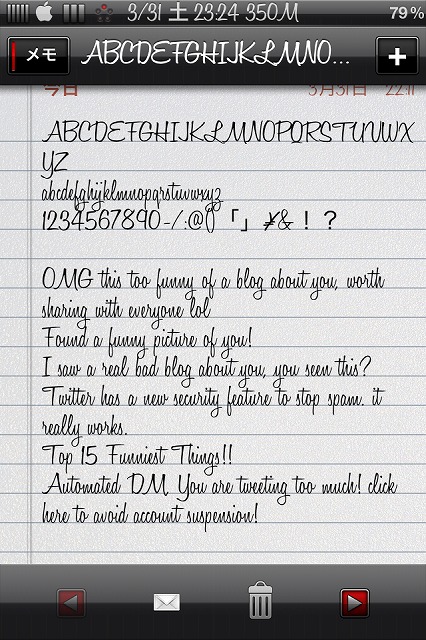 3/31 土 23:24 350M 79%
メモ ABCDEFGHIJKLMNO... +
今日 3月31日 22:11
ABCDEFGHIJKLMNOPQRSTUVWX
YZ
abcdefghijklmnopqrstuvwxyz
1234567890-/:@() 「」¥&！？
OMG this too funny of a blog about you, worth
sharing with everyone lol
Found a funny picture of you!
I saw a real bad blog about you, you seen this?
Twitter has a new security feature to stop spam. it
really works.
Top 15 Funniest Things!!
Automated DM. You are tweeting too much! click
here to avoid account suspension!